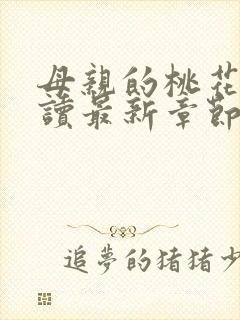 母親的桃花
讀最新章節
追夢的猪猪少